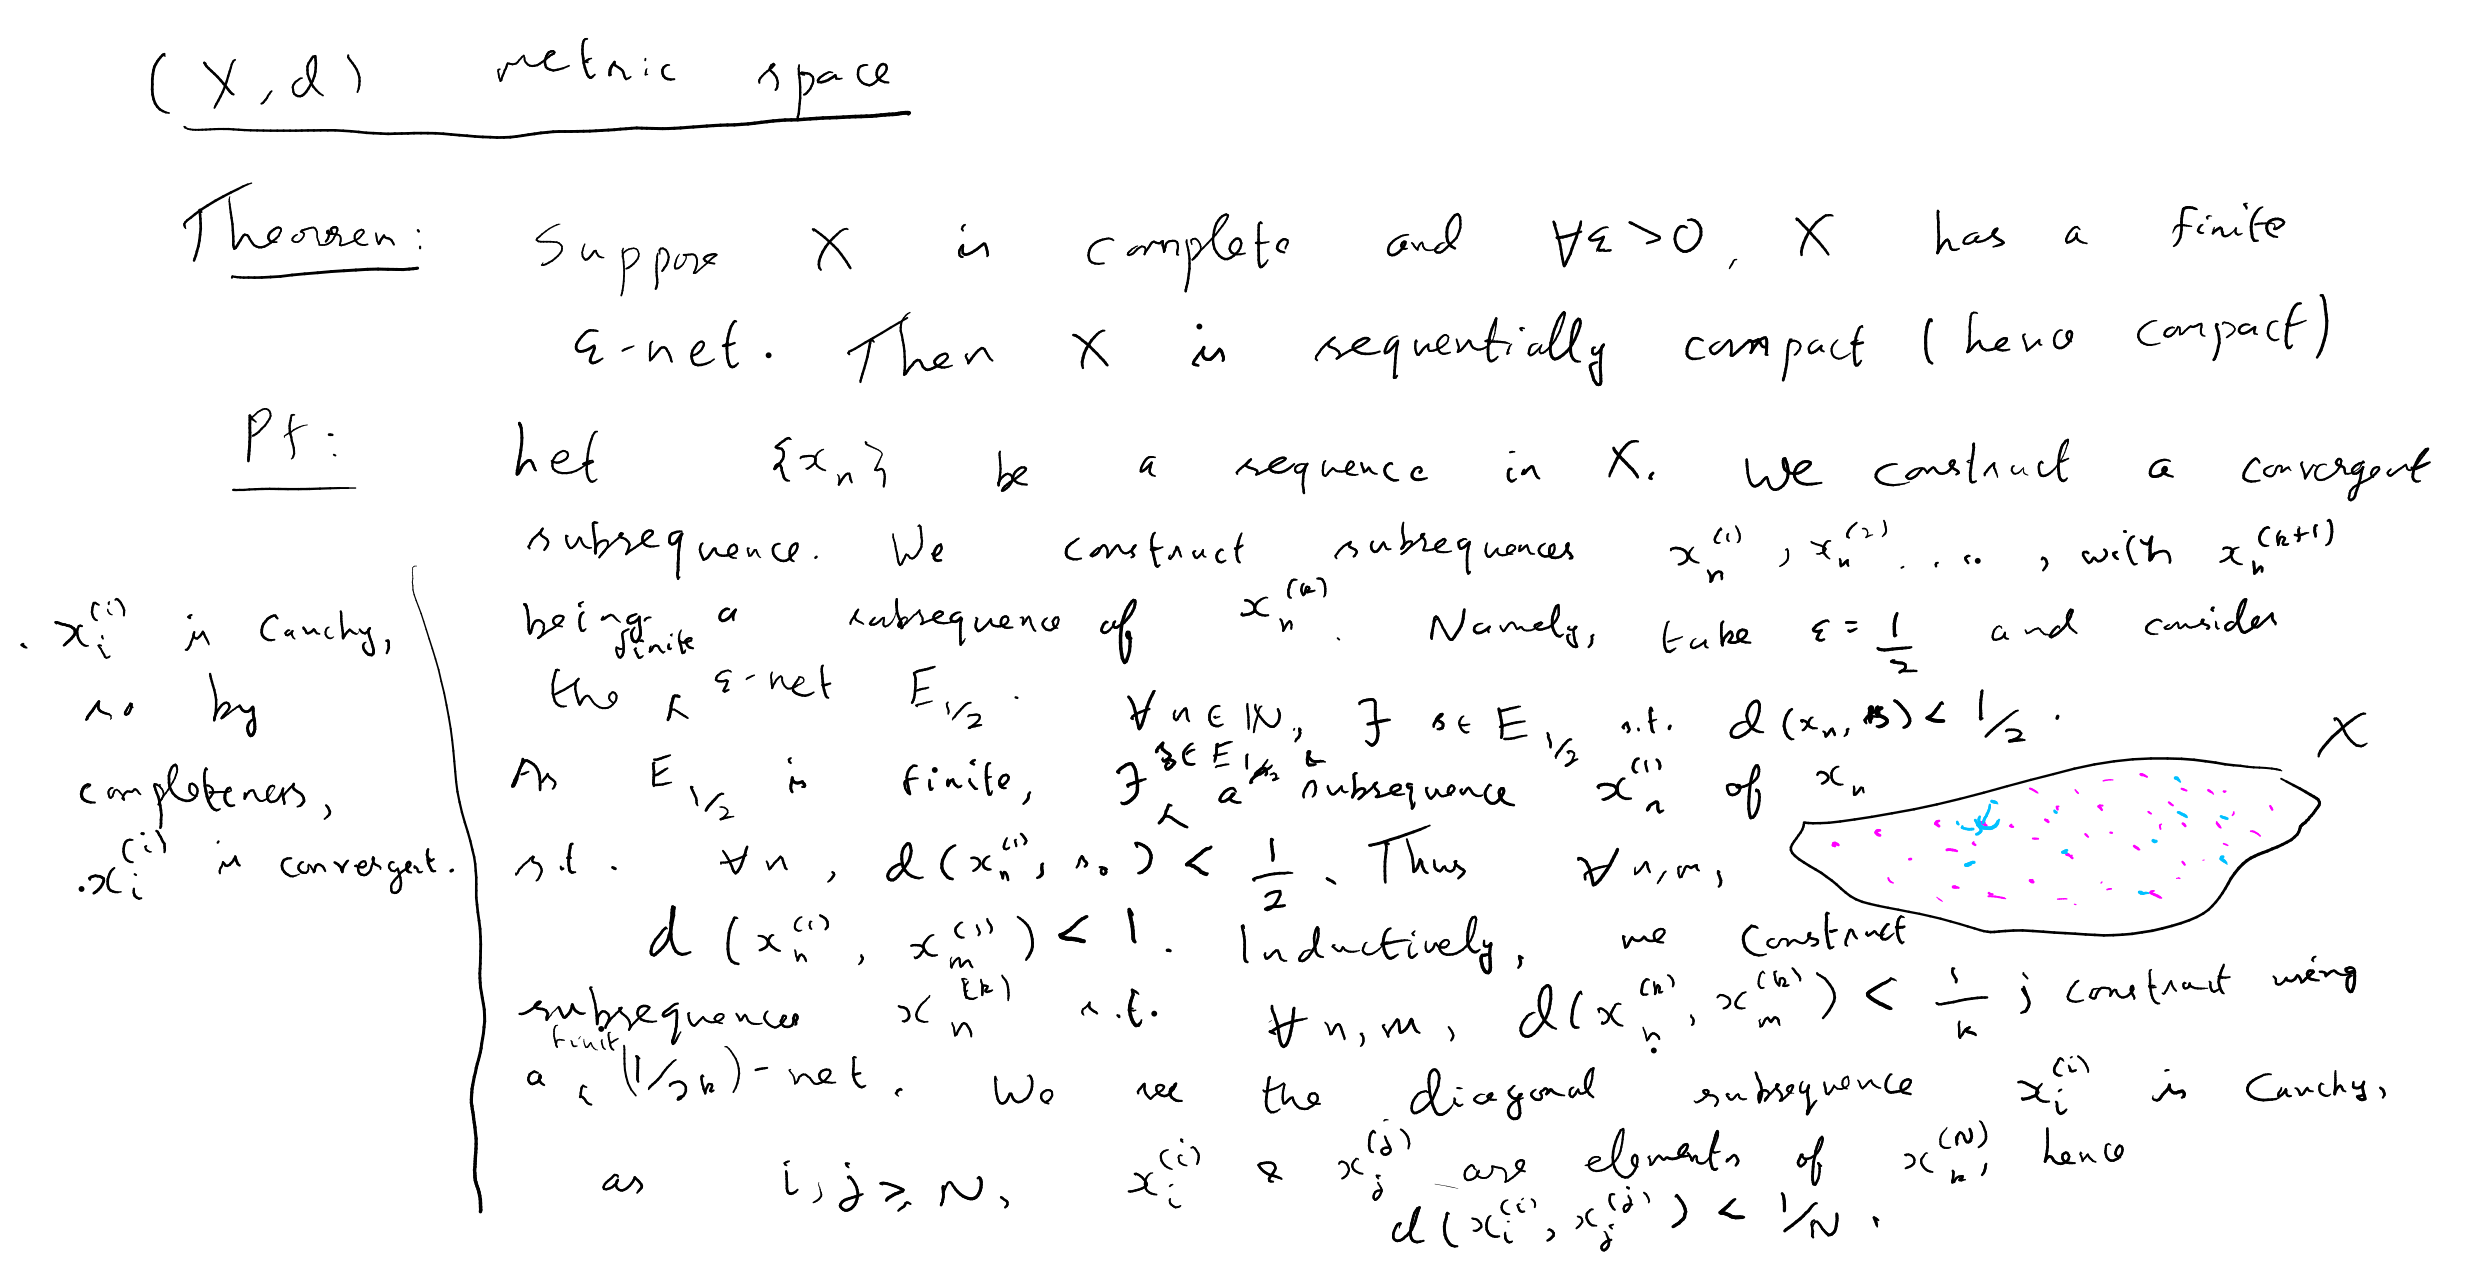 (X, d) metric space
Theorem: Suppose X is complete and ∀ε>0, X has a finite
ε-net. Then X is sequentially compact (hence compact)
Pf: Let {x_n} be a sequence in X. We construct a convergent
subsequence. We construct subsequences x_n^(1), x_n^(2), ...., with x_n^(k+1)
being a subsequence of x_n^(k). Namely, take ε = 1/2 and consider
the finite ε-net E_{1/2}. ∀ n ∈ ℕ, ∃ s ∈ E_{1/2} s.t. d(x_n, s) < 1/2.
As E_{1/2} is finite, ∃ s ∈ E_{1/2} & a subsequence x_n^(1) of x_n
s.t. ∀ n, d(x_n^(1), s_0) < 1/2. Thus ∀ n, m,
d(x_n^(1), x_m^(1)) < 1. Inductively, we construct
subsequences x_n^(k) s.t. ∀ n, m, d(x_n^(k), x_m^(k)) < 1/k ; construct using
a finite (1/2k)-net. We see the diagonal subsequence x_i^(i) is Cauchy,
as i, j ≥ N, x_i^(i) & x_j^(j) are elements of x_k^(N), hence
d(x_i^(i), x_j^(j)) < 1/N.
. x_i^(i) is Cauchy,
so by
completeness,
. x_i^(i) is convergent.
X